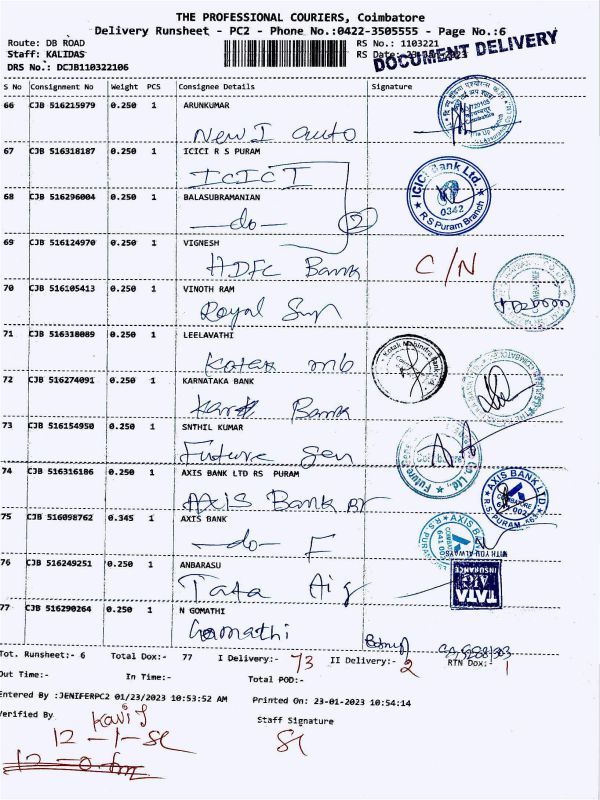 THE PROFESSIONAL COURIERS, Coimbatore
Delivery Runsheet - PC2 - Phone No.:0422-3505555 - Page No.:6
Route: DB ROAD
RS No.: 1103221
Staff: KALIDAS
RS Date:
DOCUMENT DELIVERY
DRS No.: DCJB110322106
S No Consignment No Weight PCS Consignee Details Signature
66 CJB 516215979 0.250 1 ARUNKUMAR
New I auto
67 CJB 516318187 0.250 1 ICICI R S PURAM
ICICI
ICICI Bank Ltd.
0342
R S Puram Branch
68 CJB 516296004 0.250 1 BALASUBRAMANIAN
-do- 2
69 CJB 516124970 0.250 1 VIGNESH
HDFC Bank C/N
70 CJB 516105413 0.250 1 VINOTH RAM
Royal Sun
71 CJB 516318089 0.250 1 LEELAVATHI
Kotak mb
Kotak Mahindra Bank
72 CJB 516274091 0.250 1 KARNATAKA BANK
Bank
73 CJB 516154950 0.250 1 SNTHIL KUMAR
Future Gen
74 CJB 516316186 0.250 1 AXIS BANK LTD RS PURAM
AXIS Bank
AXIS BANK LTD
COIMBATORE
641 002
R.S. PURAM
75 CJB 516098762 0.345 1 AXIS BANK
-do- F
AXIS BANK
WITH YOU ALWAYS
76 CJB 516249251 0.250 1 ANBARASU
Tata Aig
TATA
AIG
INSURANCE
77 CJB 516290264 0.250 1 N GOMATHI
Gomathi
Tot. Runsheet:- 6 Total Dox:- 77 I Delivery:- 73 II Delivery:- 2 RTN Dox:- 1
Out Time:- In Time:- Total POD:-
Entered By :JENIFERPC2 01/23/2023 10:53:52 AM Printed On: 23-01-2023 10:54:14
Verified By Staff Signature